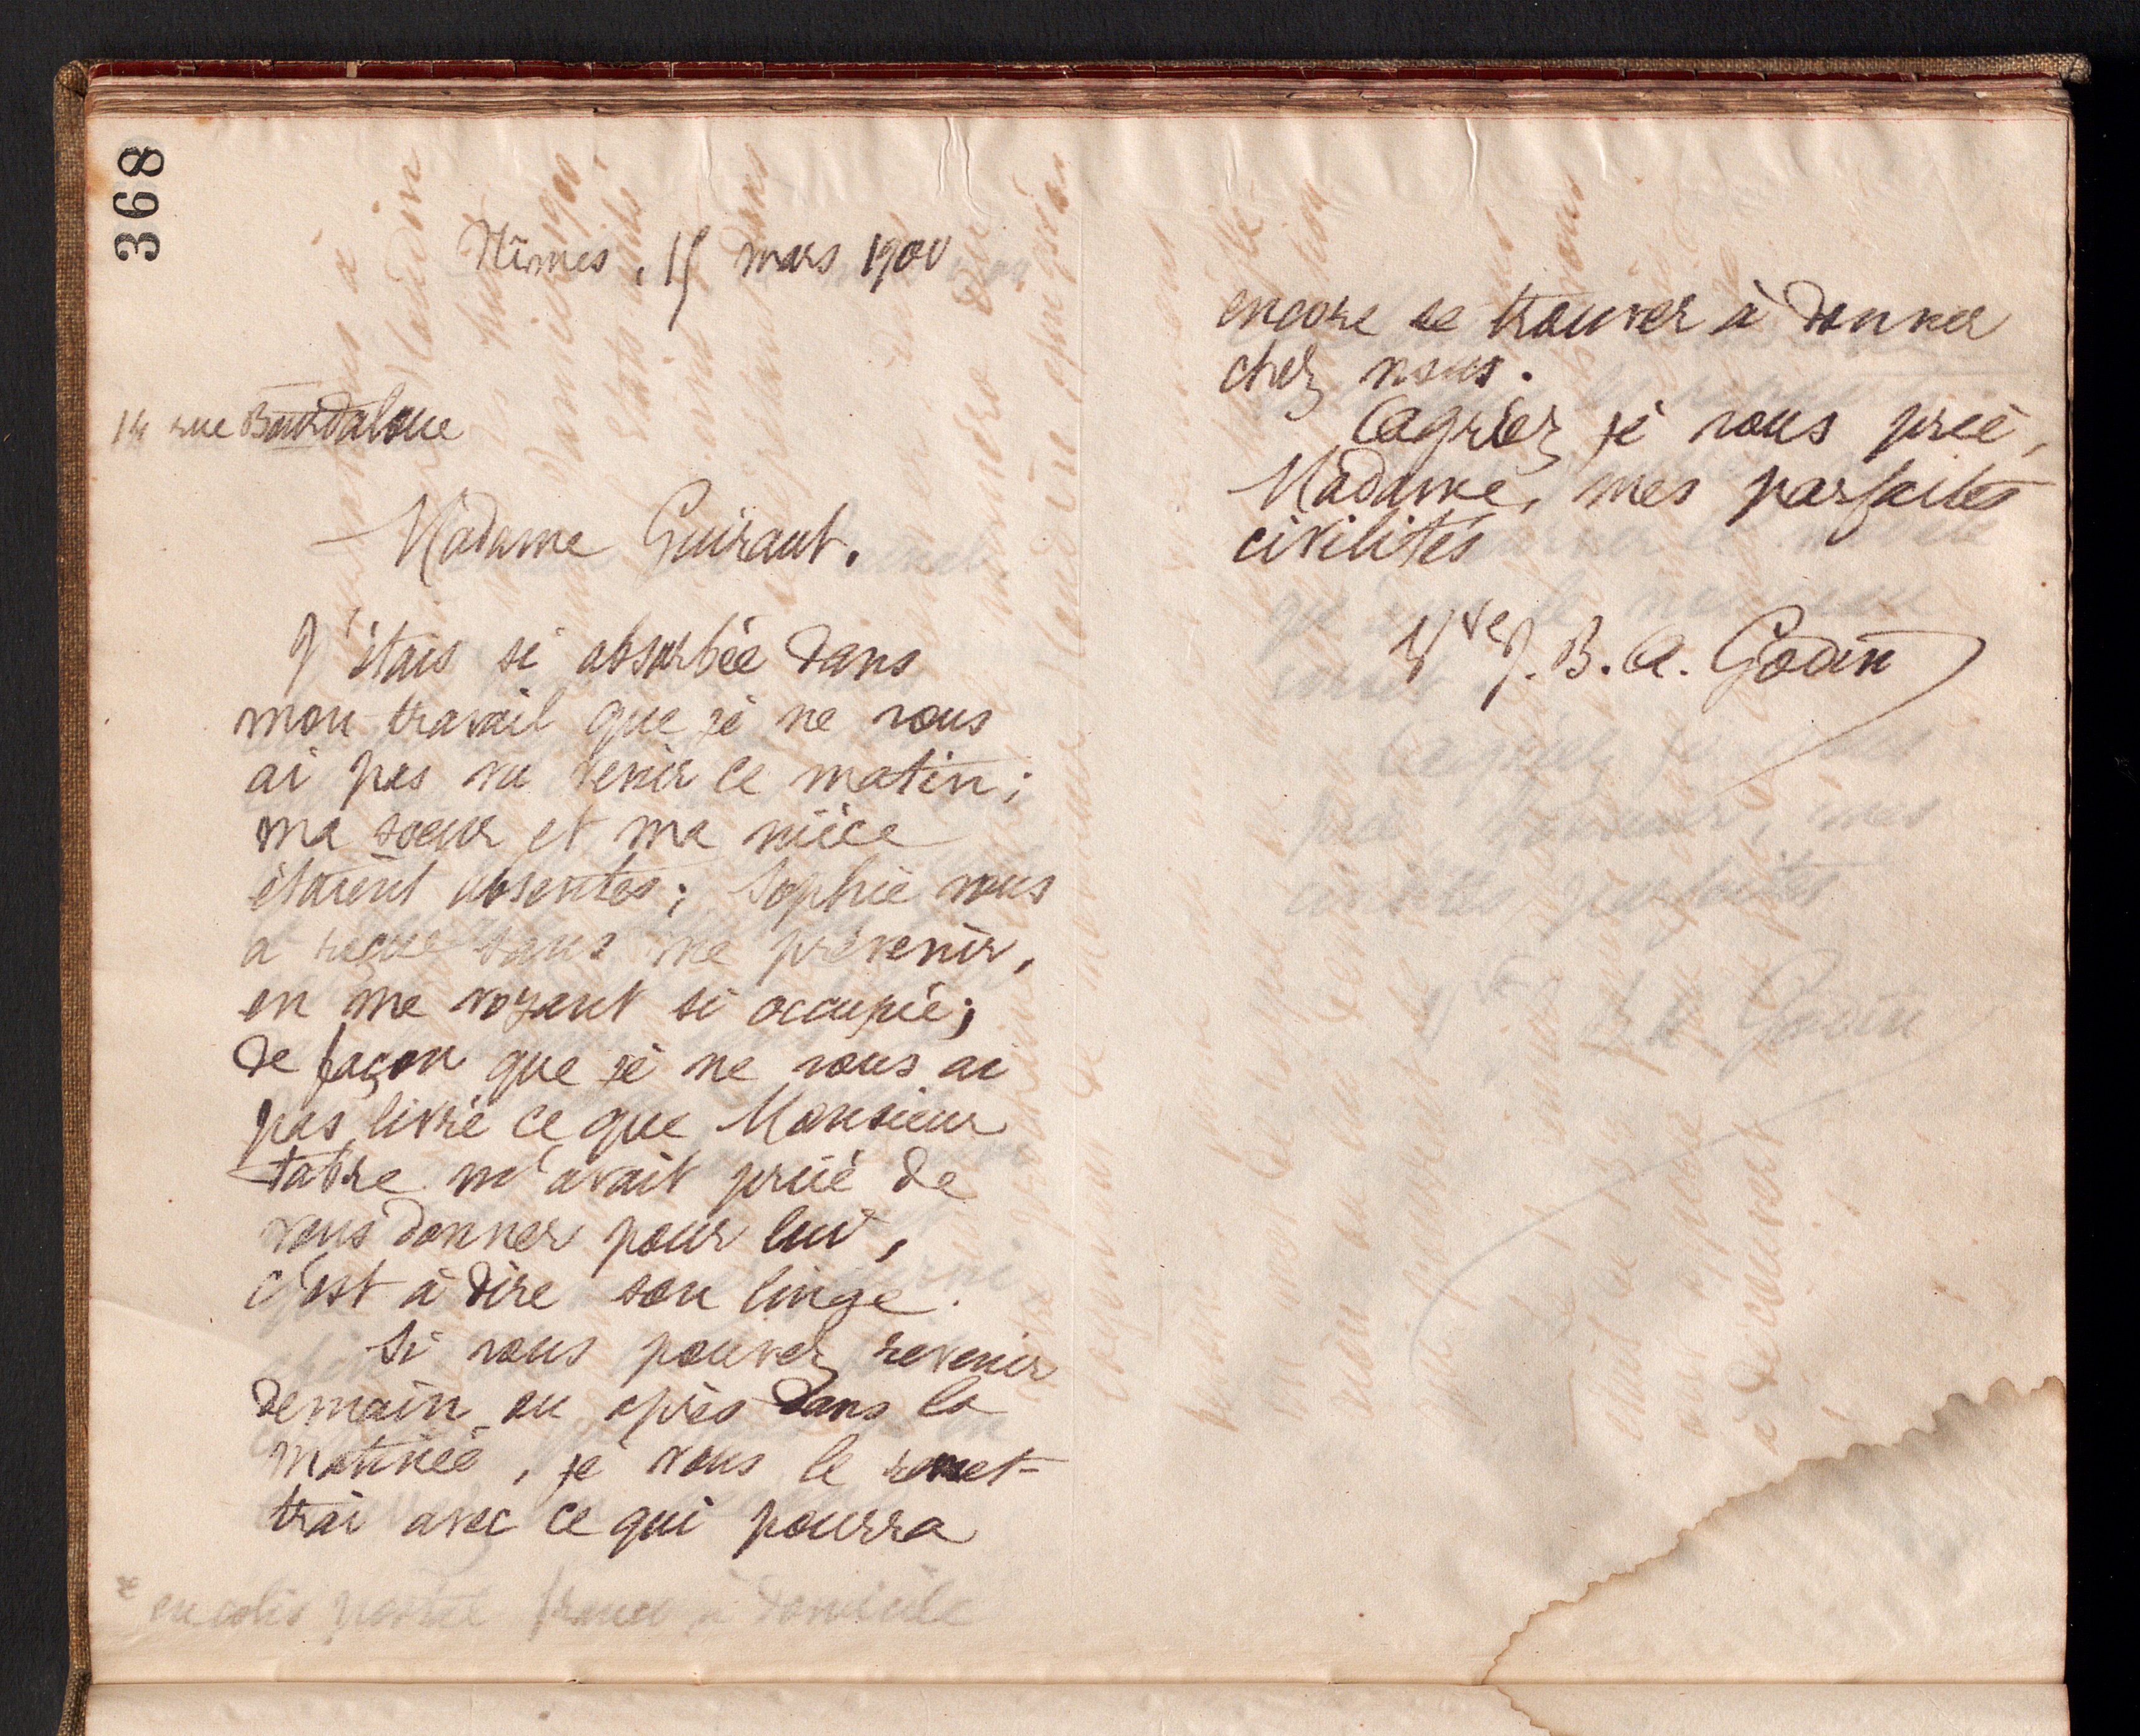 368
Nîmes, 15 mars 1900
14 rue Bourdaloue
Madame Guiraut.
J'étais si absorbée dans
mon travail que je ne vous
ai pas vu venir ce matin ;
ma soeur et ma nièce
étaient absentes ; Sophie vous
a reçue sans me prévenir,
en me voyant si occupée ;
de façon que je ne vous ai
pas livré ce que Monsieur
Fabre m'avait prié de
vous donner pour lui,
c'est à dire son linge.
Si vous pouvez revenir
demain ou après dans la
matinée, je vous le remet-
trai avec ce qui pourra
encore se trouver à donner
chez nous.
Agréez je vous prie,
Madame, mes parfaites
civilités
Vve J. B. A. Godin
en colis postal franco à domicile